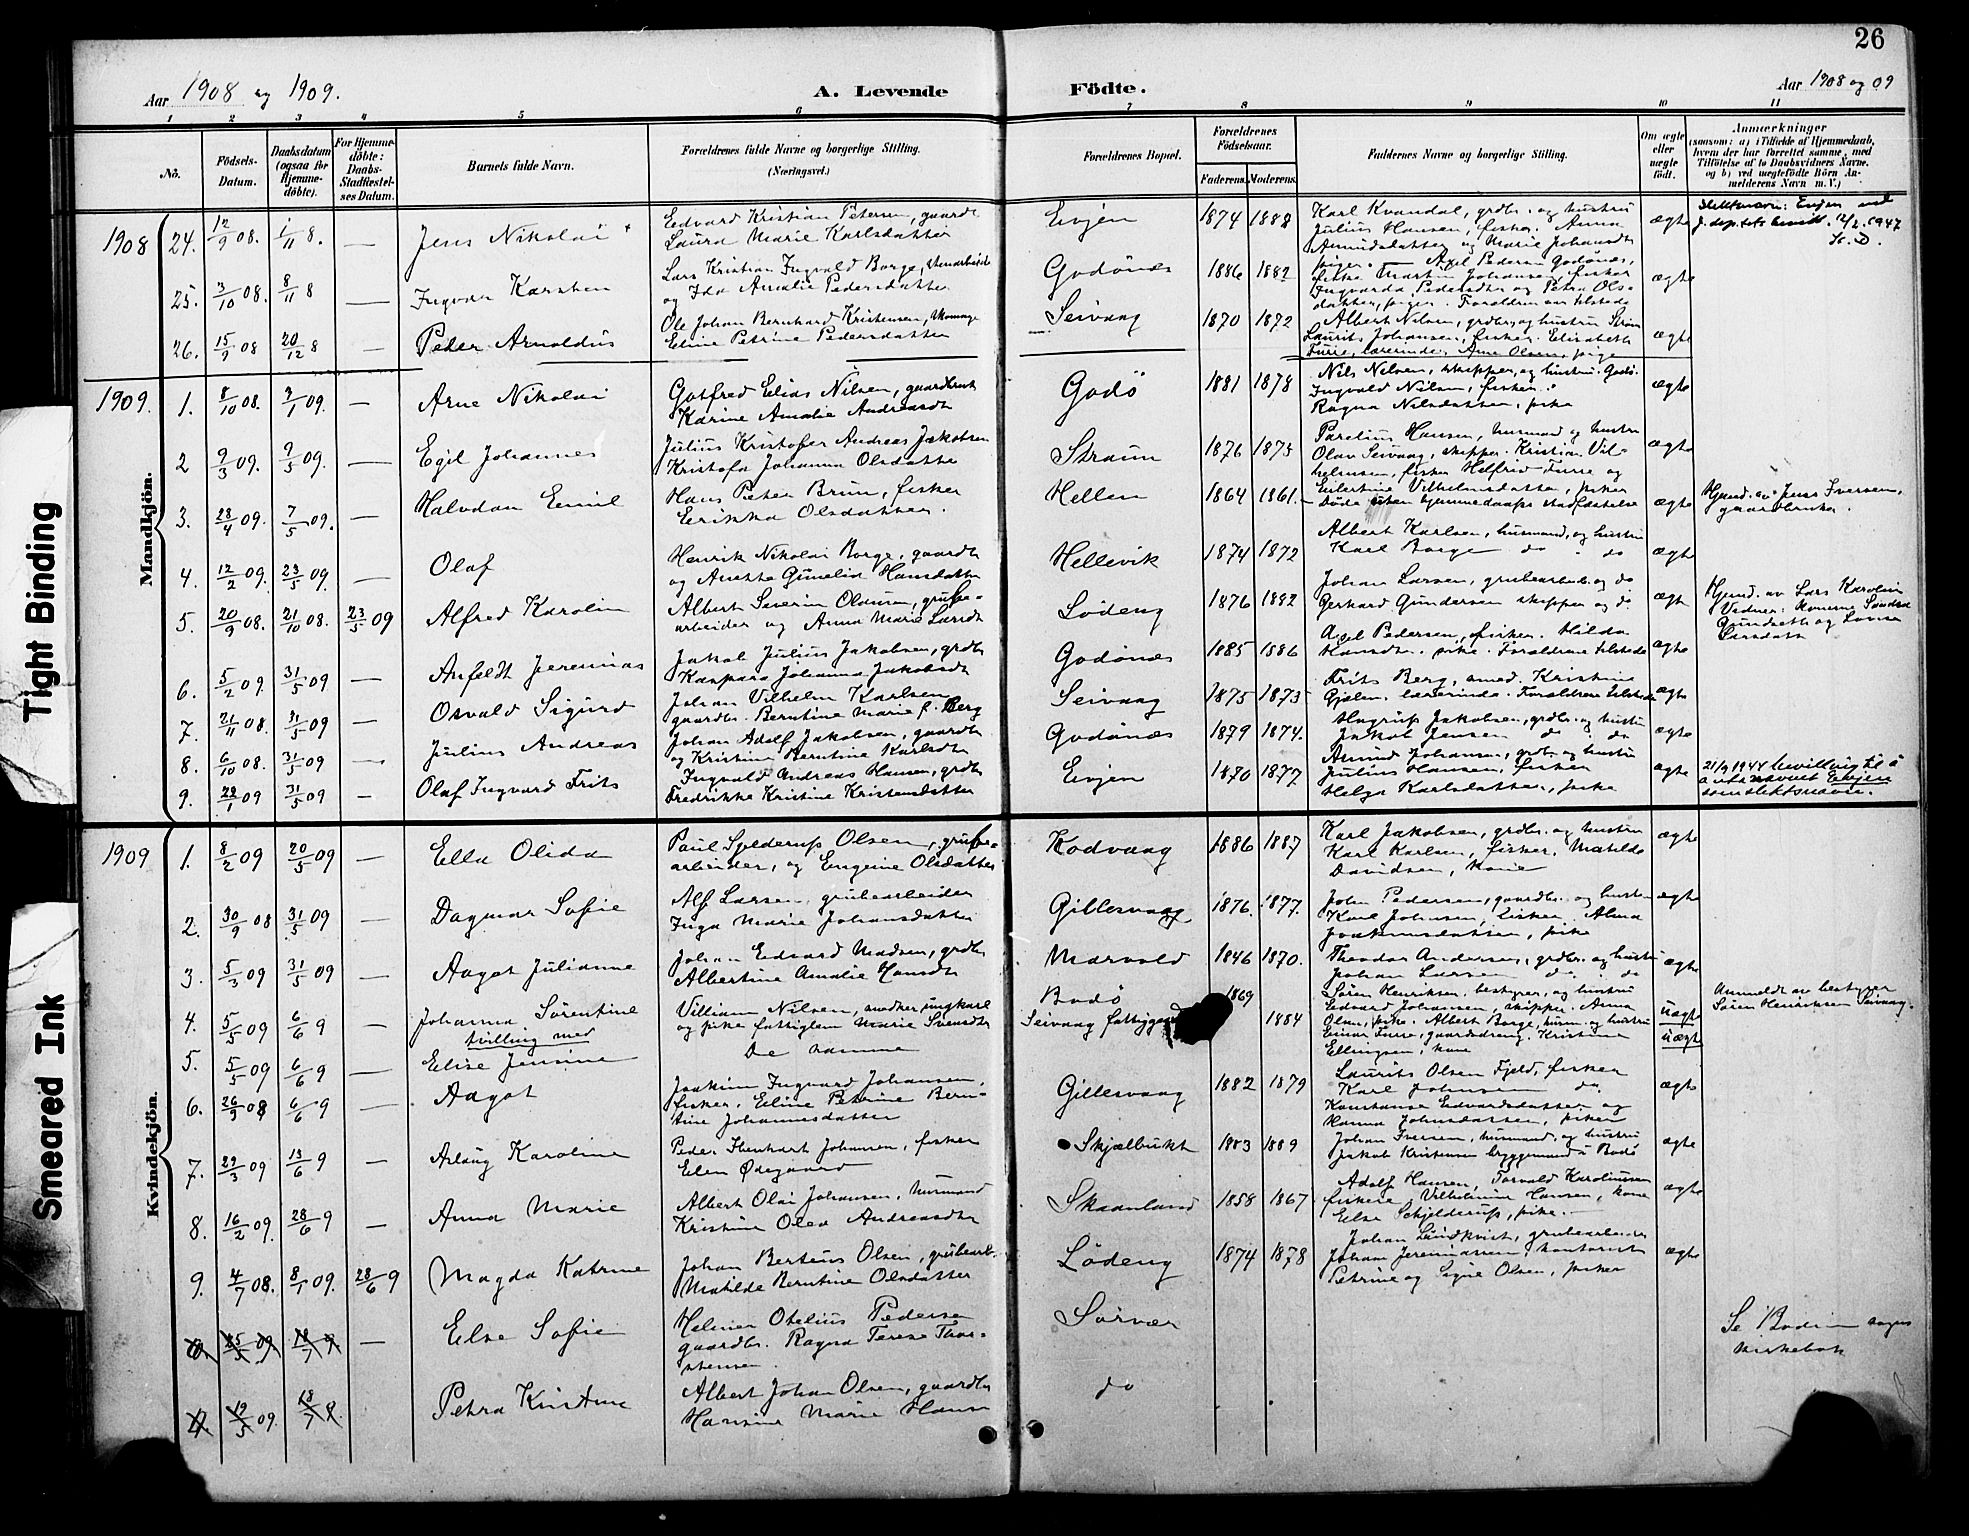 26
Aar 1908 og 1909.
A. Levende
Födte.
Aar 1908 og 09
1 2 3 4 5 6 7 8 9 10 11
No.
Födsels-
Datum.
Daabsdatum
(ogsaa for
Hjemme-
döbte).
For Hjemme-
döbte:
Daabs-
Stadfæstel-
ses Datum.
Barnets fulde Navn.
Forældrenes fulde Navne og borgerlige Stilling.
(Næringsvei.)
Forældrenes Bopæl.
Forældrenes
Födselsaar.
Faderens.
Moderens.
Faddernes Navne og borgerlige Stilling.
Om ægte
eller
uægte
födt.
Anmærkninger
(saasom: a) i Tilfælde af Hjemmedaab,
hvem der har forrettet samme, med
Tilföielse af to Daabsvidners Navne.
og b) ved uægtefödte Börn An-
melderens Navn m. V.)
Tight Binding
Smeared Ink
Mandkjön.
1908 24. 12/9 08. 1/11 8. — Jens Nikolai
Edvard Kristian Petersen, gaardb
Laura Marie Karlsdatter
Eivjen 1874 1882
Karl Kvandal, grdbr. og hustru
Julius Hansen, fisker. Anna
Amundsdatter og Marie Johansdt
piger.
ægte
Slektsnavn: Evjen ved
J. dep.tets bevill. 12/2. 1947
25. 3/10 08. 8/11 8 — Ingvar Karsten
Lars Kristian Ingvald Borge, stenarbeide
og Ida Amalie Pedersdatter
Godønes 1886 1882
Axel Pedersen Godønes,
fisker Martin Johansen, fisker
Ingvarda Pedersdtr og Petra Ols-
datter, piger. Forældrene tilstede
ægte
26. 15/9 08 20/12 8 — Peder Arnoldus
Ole Johan Bernhard Kristensen,
Eline Petrine Pedersdatter
Seivaag 1870 1872
Albert Nilsen, grdbr. og hustru Strøm
Laurits Johansen, fisker. Elisabeth
Furre, lærerinde. Anne Olsen, pige
ægte
1909. 1. 8/10 08. 3/1 09. — Arne Nikolai
Gotfred Elias Nilsen, gaardbruk
Karine Amalie Andreasdt
Godø 1881 1878
Nils Nilsen, skipper, og hustru. Godø.
Ingvald Nilsen, fisker.
Ragna Nilsdatter, pike
ægte
2 9/3 09. 9/5 09. — Egil Johannes
Julius Kristofer Andreas Jakobsen
Kristofa Johanna Olsdatter
Straum 1876 1875
Parelius Hansen, husmand og hustru
Olav Seivaag, skipper. Kristian Vil-
helmsen, fisker Helfrid Furre og
Eilertine Vilhelmsdatter, piker
ægte
3. 28/4 09. 7/5 09. — Halvdan Emil
Hans Peter Brun, fisker
Erikka Olsdatter.
Hellen 1864 1861.
Døde uten hjemmedaaps stadfæstelse
ægte
Hjmd. av Jens Iversen,
gaardbruker.
4. 12/2 09. 23/5 09. — Olaf
Henrik Nikolai Borge, gaardb
og Anette Gunelia Hansdatter
Hellevik 1874 1872
Albert Karlsen, husmand, og hustru
Karl Borge do . do
ægte
5. 20/9 08. 21/10 08. 23/5 09 Alfred Karolin
Albert Severin Olausen, grube-
arbeider og Anna Marie Larsdt
Lødeng 1876 1882
Johan Larsen, grubearbeid. og do
Gerhard Gundersen skipper og do
ægte
Hjmd. av Lars Karolin
Vidner: Konerne Sandra
Gundersdt og Lovise
Larsdatter
6. 5/2 09. 31/5 09 — Anfeldt Jeremias
Jakob Julius Jakobsen, grdbr
Kaspara Johanna Jakobsdt
Godønes 1885 1886
Axel Pedersen, fisker. Hilda
Hansdt. pike. Forældrene tilstede
ægte
7. 21/11 08. 31/5 09 — Osvald Sigurd
Johan Vilhelm Karlsen
gaardbr. Berntine Marie f. Berg
Seivaag 1875 1873
Frits Berg, smed. Kristine
Gjølen, lærerinde. Forældrene tilstede
ægte
8. 6/10 08. 31/5 09 — Julius Andreas
Johan Adolf Jakobsen, gaardb
og Kristine Berntine Karlsdt
Godønes 1879 1874.
Hagrup Jakobsen, grdbr. og hustru
Jakob Jensen do . do
ægte
9. 29/1 09 31/5 09 — Olaf Ingvard Frits
Ingvald Andreas Hansen, grdbr
Fredrikke Kristine Kristensdatter
Eivjen 1870 1877
Amund Johansen, grdb. og hustru
Julius Hansen, fisker
Helga Karlsdatter, pike
ægte
21/9 1944 bevilling til å
anta navnet Evjen
som slektsnavn.
Kvindekjön.
1909 1. 8/2 09 20/5 09 — Ella Olida
Paul Sjelderup Olsen, grube-
arbeider, og Eugenie Olsdatter
Kodvaag 1886 1887
Karl Jakobsen, grdbr. og hustru
Karl Karlsen, fisker. Matilde
Davidsen, kone
ægte
2. 30/9 08 31/5 09 — Dagmar Sofie
Alf Larsen, grubearbeider
Inga Marie Johansdatter
Gillesvaag 1876. 1877.
John Pedersen, gaardbr. og hustru
Karl Johnsen, fisker. Alma
Joakimsdatter, pike
ægte
3. 5/3 09 31/5 09 — Aagot Julianne
Johan Edvard Madsen, grdbr
Albertine Amalie Hansdt
Marvold 1846 1870.
Theodor Andersen, grdbr. og hustru
Johan Larsen do . do
ægte
4. 5/5 09 6/6 9 — Johanna Sørentine
tvilling med
Villiam Nilsen, snedker, ungkarl
og pike fattiglem Marie Svensdt
Bodø 1869
Seivaag fattiggaa 1884
Søren Henriksen, bestyrer, og hustru
Edvard Johansen, skipper. Anna
Olsen, pike. Albert Borge, husm. og hustru
Einar Furre, gaardsdreng. Kristine
Ellingsen, kone
uægte
Anmeldt av bestyrer
Søren Henriksen Seivaag.
5. 5/5 09 6/6 9 — Elise Jensine
De samme
uægt
6. 26/9 08 6/6 9 — Aagot
Joakim Ingvard Johansen,
fisker, Eline Petrine Bern-
tine Johannesdatter
Gillesvaag 1882 1879
Laurits Olsen Fjeld, fisker
Karl Johnsen do.
Konstanse Edvardsdatter og
Hanna Johnsdatter, piker
ægte
7. 29/3 09 13/6 9 — Aslaug Karoline
Peder Ihenhart Johansen, fisker
Elen Ødegaard
Skjælbukt 1883 1889
Johan Iversen, husmand, og hustru
Jakob Kristensen bryggemand i Bodø
ægte
8. 16/2 09. 28/6 9 — Anna Marie
Albert Olai Johansen, husmand
Kristine Olea Andreasdt
Skaanland 1858 1867
Adolf Hansen, Torvald Karoliussen
fiskere Vilhelmine Hansen, kone
Else Schjelderup, pike.
ægte
9. 4/7 08. 8/1 09. 28/6 9 Magda Katrine
Johan Berteus Olsen, grubearb.
Matilde Berntine Olsdatter
Lødeng 1874 1878
Johan Lundkvist, grubearbeider
Johan Jeremiassen, kontorist
Petrine og Signe Olsen, piker
ægte
25/5 09 18/7 9 — Else Sofie
Helmer Otelius Pederse
gaardbr. Ragna Terese Thor-
stensen.
Sørvær
Se Bodin sogns
kirkebok
19/5 09. 18/7 9. Petra Kristine
Albert Johan Olsen, gaardbr
Hansine Marie Hansn
do